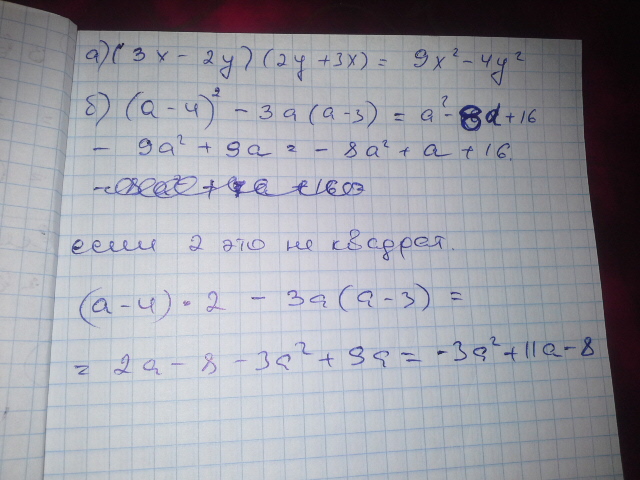 а) (3x - 2y) (2y + 3x) = 9x² - 4y²
б) (a - 4)² - 3a (a - 3) = a² - 8a + 16
- 9a² + 9a = - 8a² + a + 16.
если 2 это не квадрат.
(a - 4) · 2 - 3a (a - 3) =
= 2a - 8 - 3a² + 9a = -3a² + 11a - 8